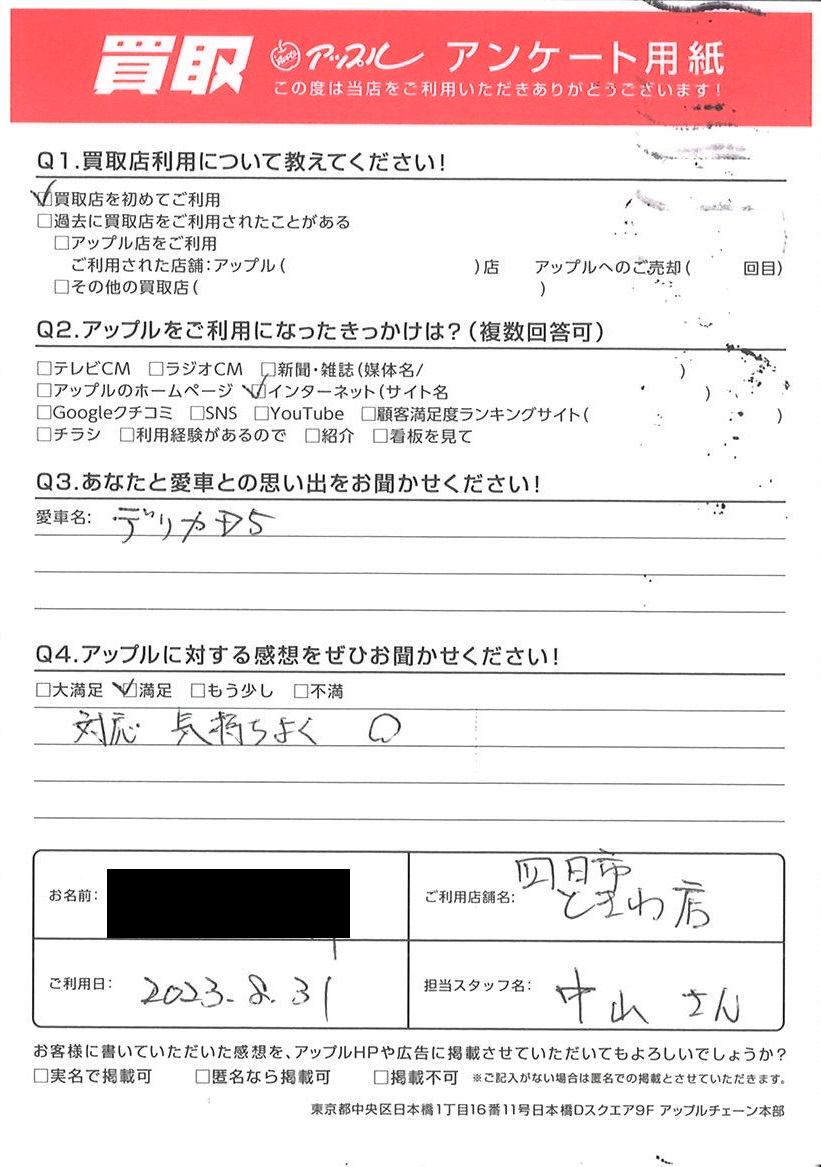 買取 アップル アンケート用紙
この度は当店をご利用いただきありがとうございます!
Q1.買取店利用について教えてください!
☑買取店を初めてご利用
□過去に買取店をご利用されたことがある
□アップル店をご利用
ご利用された店舗:アップル( )店 アップルへのご売却( 回目)
□その他の買取店( )
Q2.アップルをご利用になったきっかけは?(複数回答可)
□テレビCM □ラジオCM □新聞・雑誌(媒体名/ )
□アップルのホームページ ☑インターネット(サイト名 )
□Googleクチコミ □SNS □YouTube □顧客満足度ランキングサイト( )
□チラシ □利用経験があるので □紹介 □看板を見て
Q3.あなたと愛車との思い出をお聞かせください!
愛車名: デリカD5
Q4.アップルに対する感想をぜひお聞かせください!
□大満足 ☑満足 □もう少し □不満
対応 気持ちよく ○
お名前:
ご利用店舗名: 四日市ときわ店
ご利用日: 2023.8.31
担当スタッフ名: 中山さん
お客様に書いていただいた感想を、アップルHPや広告に掲載させていただいてもよろしいでしょうか?
□実名で掲載可 □匿名なら掲載可 □掲載不可 ※ご記入がない場合は匿名での掲載とさせていただきます。
東京都中央区日本橋1丁目16番11号日本橋Dスクエア9F アップルチェーン本部